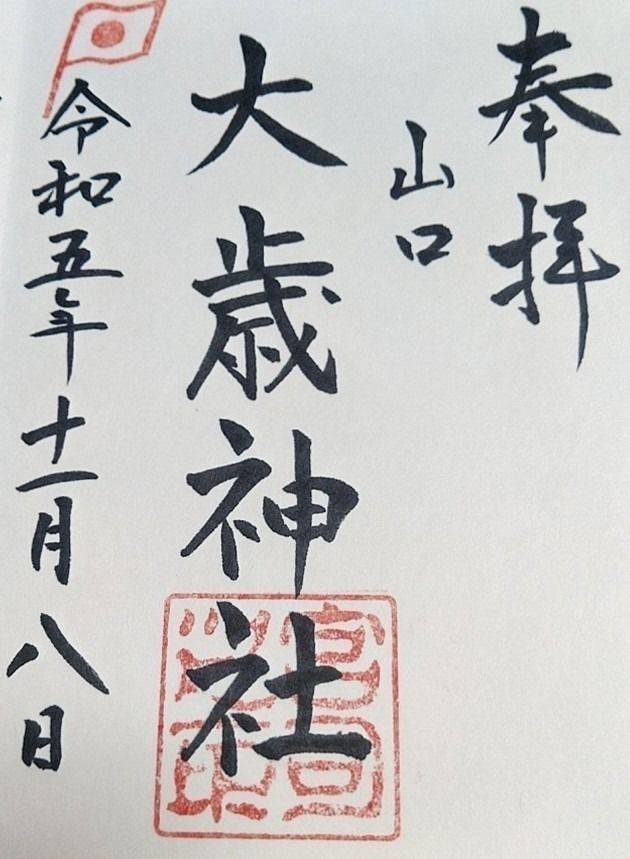 奉拝
山口
大歳神社
令和五年十一月八日
宮司之印